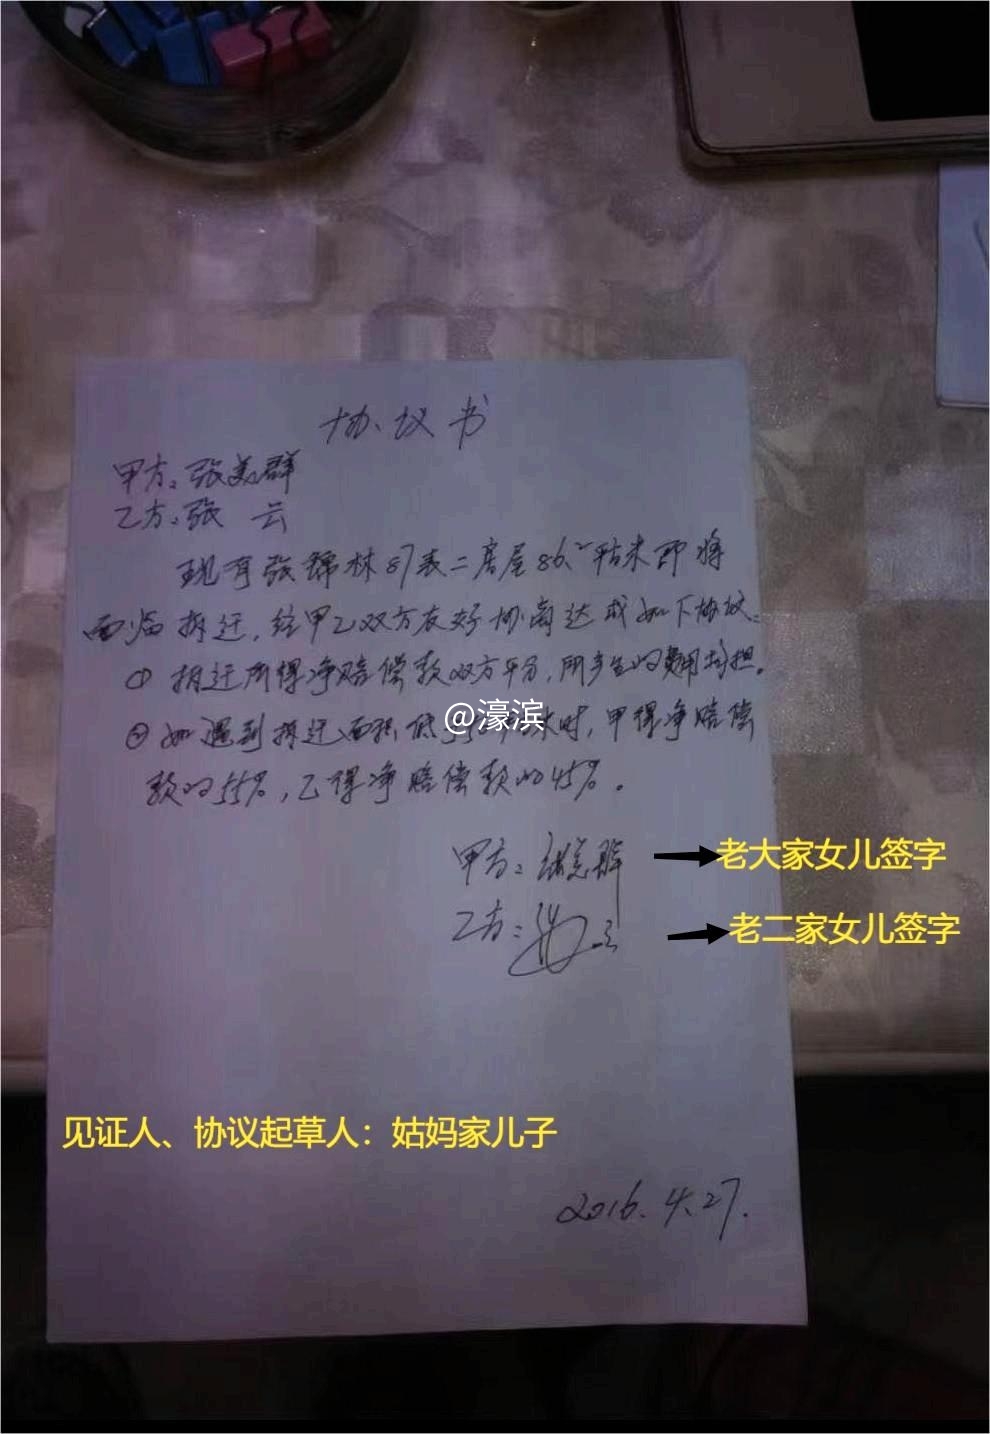 协议书
甲方:张美群
乙方:张 云
现有张锦林87表二房屋86.2平米即将
面临拆迁,经甲乙双方友好协商达成如下协议:
① 拆迁所得净赔偿款双方平分,所产生的费用均担。
@濠滨
② 如遇到拆迁面积低于 平米时,甲得净赔偿
款的55%,乙得净赔偿款的45%。
甲方:张美群
老大家女儿签字
乙方:张云
老二家女儿签字
见证人、协议起草人:姑妈家儿子
2016.4.27.